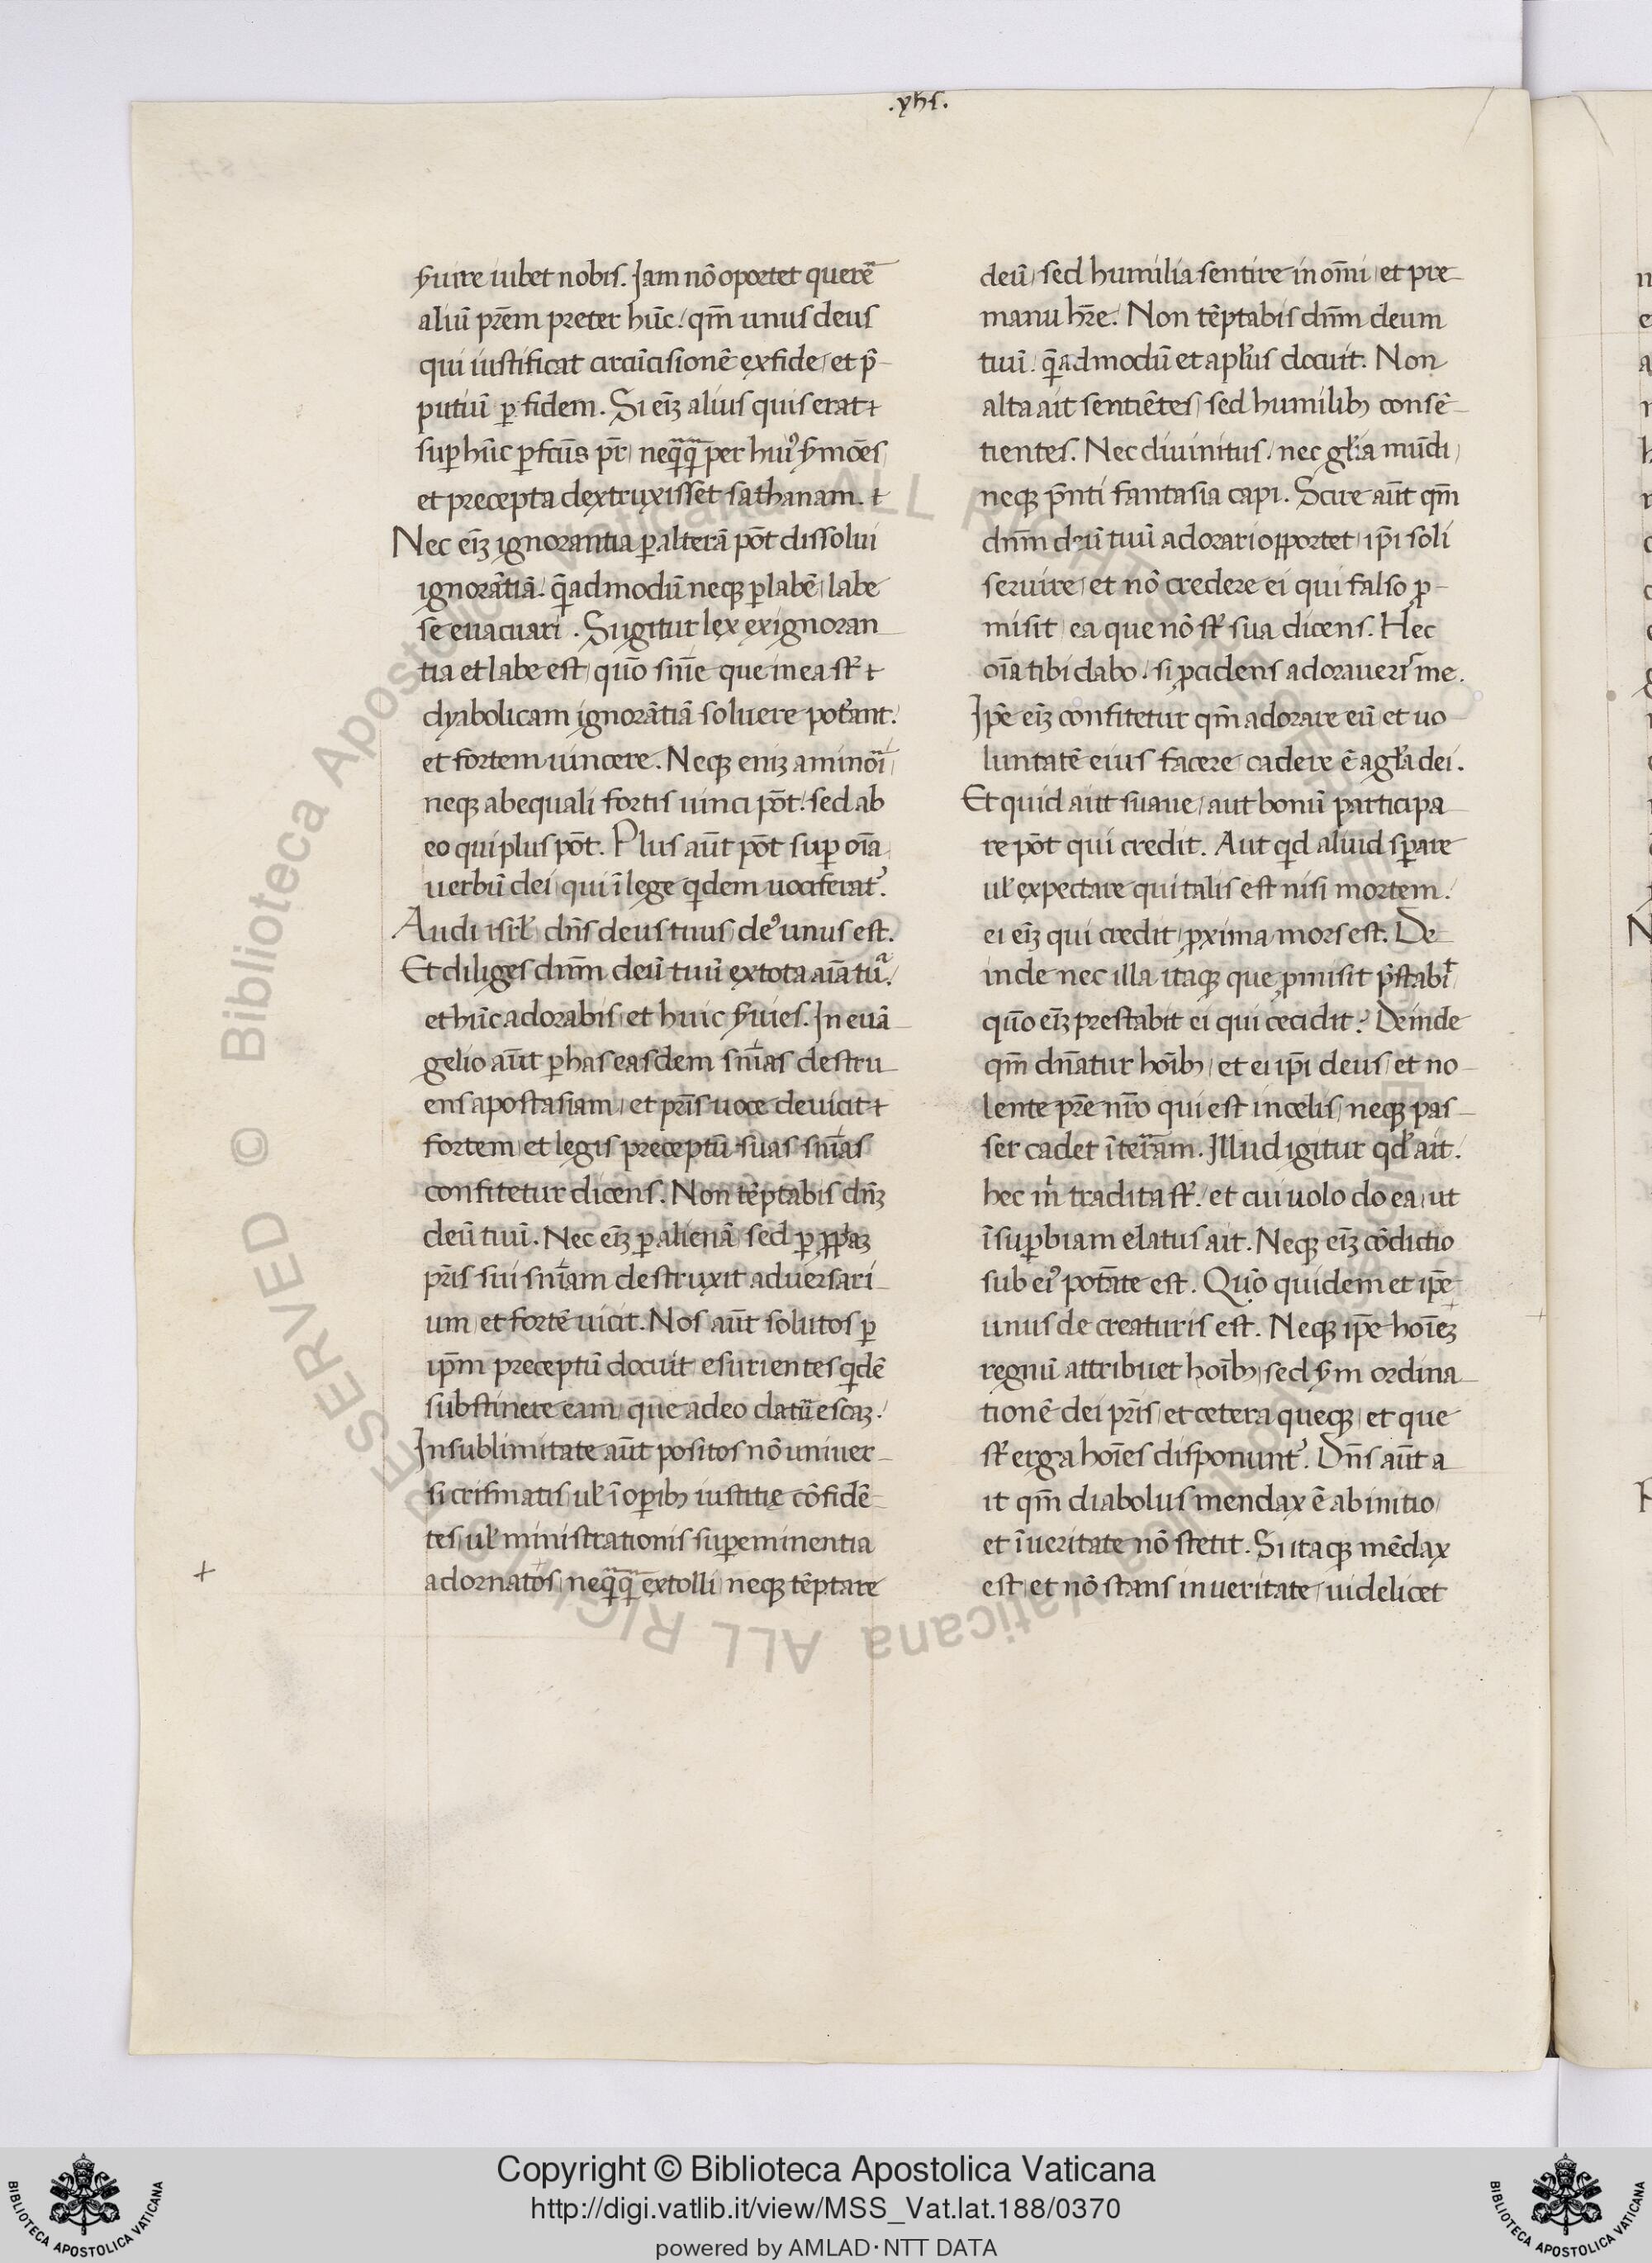 .yhs.
ẜuire iubet nobis. Jam nō oportet querē
aliū pr̄em preter hūc. qm̄ unus deus
qui iustificat circūcisionē ex fide, et p̄-
putiū ꝑ fidem. Si ei̅ʒ alius quis erat
suꝑ hūc ꝑfctūs pr̄, per huiꝰ ẜmōes
et precepta dextruxisset sathanam.
Nec ei̅ʒ ignorantia ꝑ alterā pōt dissolui
ignorātiā. q̄admodū neqʒ ꝑ labē, labe
se euacuari. Si igitur lex ex ignoran-
tia et labe est, quō snīe que in ea sť
dyabolicam ignorātiā soluere poťant.
et fortem uincere. Neqʒ eniʒ a minōi
neqʒ ab equali fortis uinci pōt. sed ab
eo qui plus pōt. Plus aūt pōt suꝑ oīa
uerbū dei, qui ī lege qdem uociferat᷑.
Audi isrł dn̄s deus tuus, deꝰ unus est.
Et diliges dn̄m deū tuū ex tota aīa tuᵃ.
et hūc adorabis, et huic ẜuies. In euā-
gelio aūt ꝑ has easdem snīas destru-
ens apostasiam, et pr̄is uoce deuicit
fortem, et legis preceptū suas snīas
confitetur dicens. Non tēptabis dn̄ʒ
deū tuū. Nec ei̅ʒ ꝑ alienā, sed ꝑ
pr̄is sui snīam destruxit aduersari-
um, et fortē uicit. Nos aūt solutos ꝑ
ip̄m preceptū docuit esurientes qdē
substinere eam, que a deo datū escaʒ.
In sublimitate aūt positos nō uniuer-
si crismatis, uł ī oꝑibʒ iustitię cōfidē-
tes, uł ministrationis suꝑeminentia
adornatos, extolli, neqʒ tēptare
deū, sed humilia sentire in om̄i, et pre
manu hr̄e. Non tēptabis dn̄m deum
tuū. q̄admodū et apłus docuit. Non
alta ait sentiētes, sed humilibʒ consē-
tientes. Nec diuinitus, nec głia mūdi,
neqʒ p̄nti fantasia capi. Scire aūt qm̄
dn̄m deū tuū adorari opportet, ip̄i soli
seruire, et nō credere ei qui falso ꝓ-
misit, ea que nō sť sua dicens. Hec
oīa tibi dabo, si ꝓcidens adorauerı᷒ me.
Ip̄e ei̅ʒ confitetur qm̄ adorare eū, et uo-
luntatē eius facere cadere ē a głia dei.
Et quid aut suaue, aut bonū participa-
re pōt qui credit. Aut qd aliud sꝑare
uł expectare qui talis est nisi mortem.
ei ei̅ʒ qui credit, ꝓxima mors est. De-
inde nec illa itaqʒ que ꝓmisit p̄stabiᵗ
quō ei̅ʒ prestabit ei qui cecidit. Deinde
qm̄ dn̄atur hoībʒ, et ei ip̄i deus, et no-
lente pr̄e nr̄o qui est in celis, neqʒ pas-
ser cadet ī terram. Illud igitur qd̵ ait.
hec m̍ tradita sť. et cui uolo do ea, ut
ī suꝑbiam elatus ait. Neqʒ ei̅ʒ cōdictio
sub eiꝰ potāte est. Quō quidem et ip̄e
unus de creaturis est. Neqʒ ip̄e hoīeʒ
regnū attribuet hoībʒ, sed ẜm ordina-
tionē dei pr̄is, et cetera queqʒ, et que
sť erga hoīes disponunt᷑. Dn̄s aūt a-
it qm̄ diabolus mendax ē ab initio,
et ī ueritate nō stetit. Si itaqʒ mēdax
est, et nō stans in ueritate, uidelicet
Copyright © Biblioteca Apostolica Vaticana
http://digi.vatlib.it/view/MSS_Vat.lat.188/0370
powered by AMLAD·NTT DATA
BIBLIOTECA APOSTOLICA VATICANA
BIBLIOTECA APOSTOLICA VATICANA